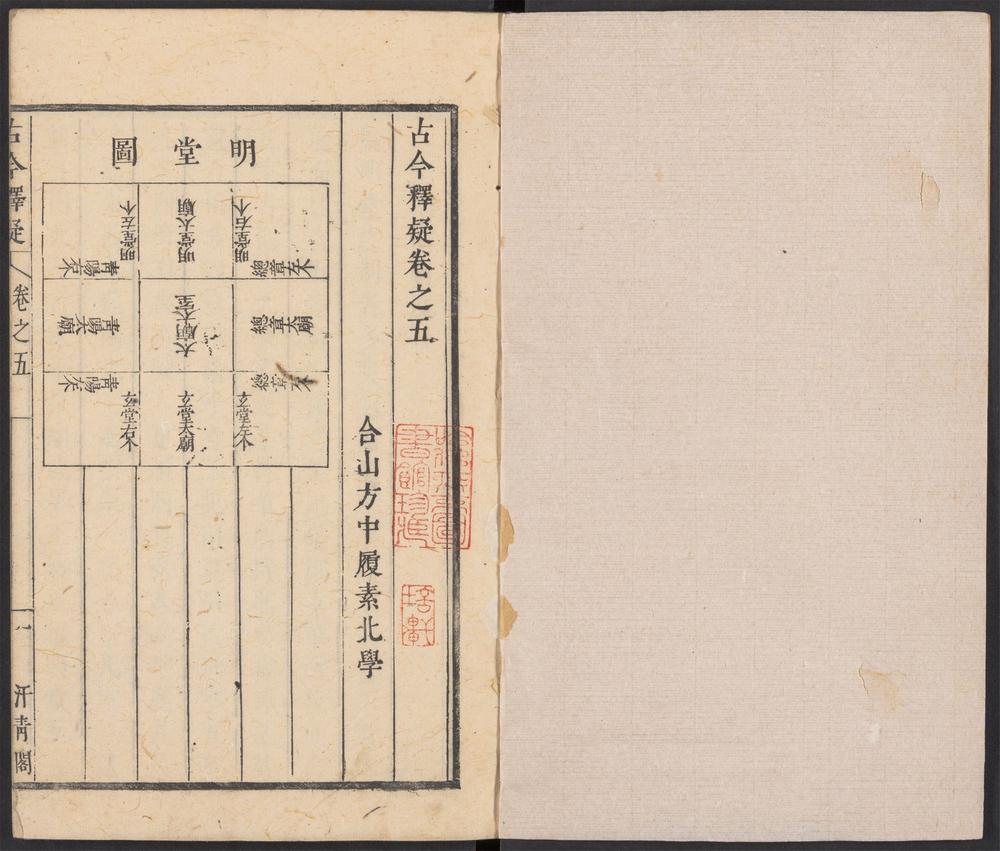 古今釋疑卷之五
合山方中履素北學
明堂圖
明堂右个
總章左个
明堂太廟
明堂左个
青陽右个
總章大廟
太廟太室
青陽太廟
玄堂左个
玄堂太廟
玄堂右个
青陽左个
古今釋疑
卷之五
一
汗青閣